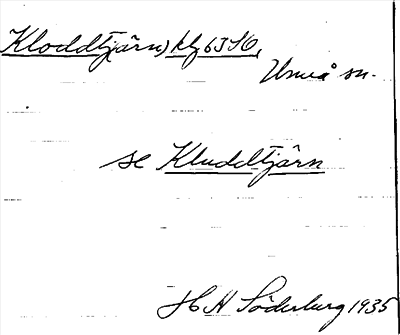 Kloddtjärn) kf 63 I 6,
Umeå sn.
se Kluddtjärn
H H Söderburg 1935